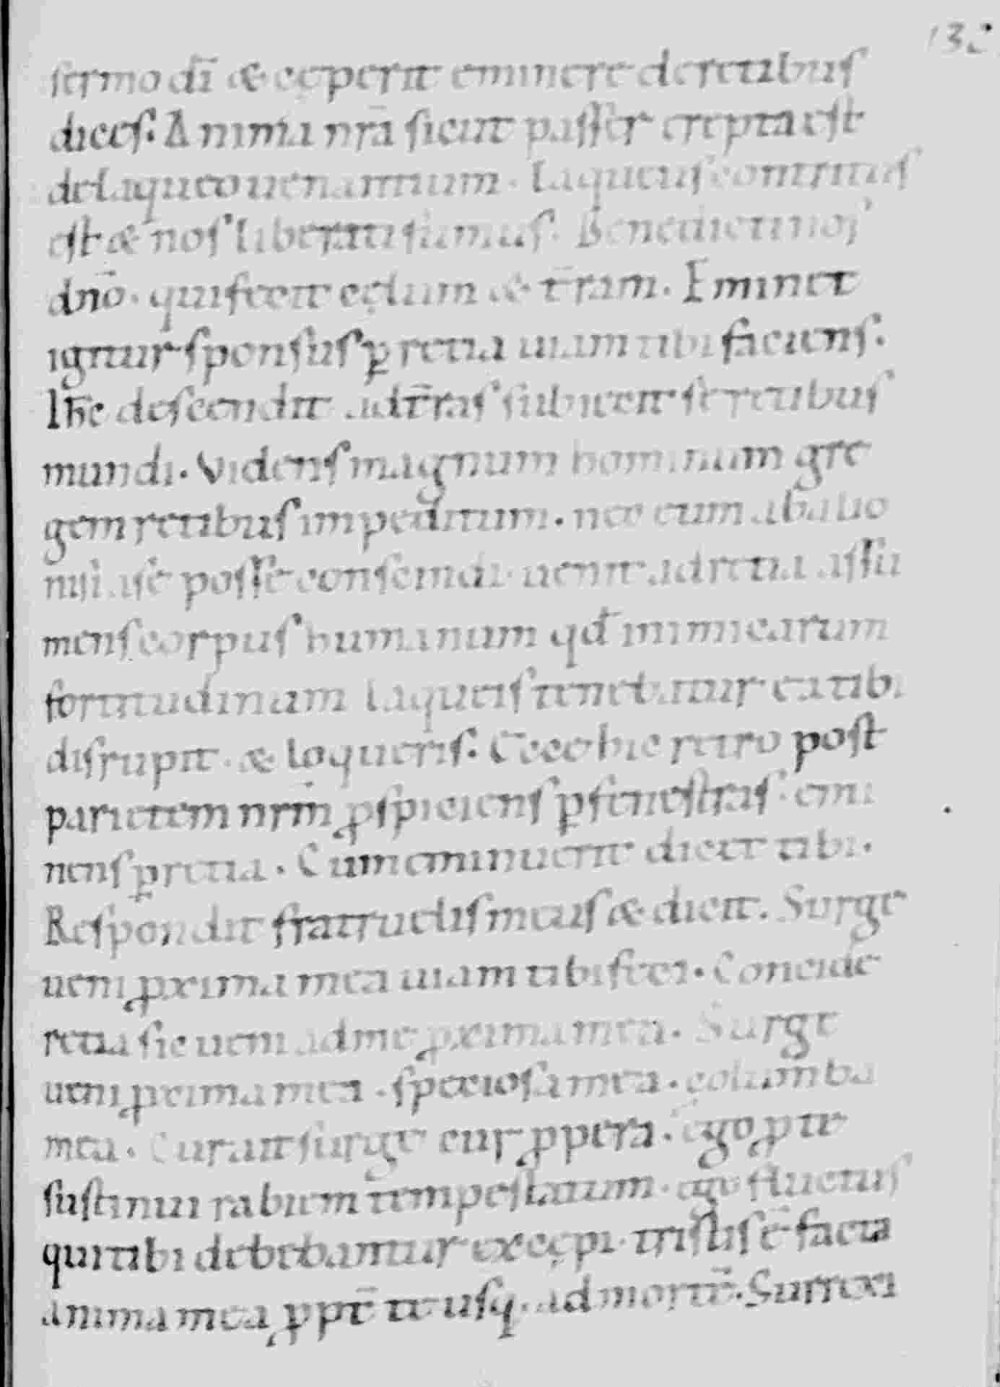 132
sermo dī & cęperit eminere de retibus
dices. Anima nrā sicut passer erepta est
de laqueo uenantium. Laqueus contritus
est & nos liberati sumus. Benedicti nos
dnō. qui fecit cęlum & t̄ram. Eminet
igitur sponsus ꝑ retia uiam tibi faciens.
Ihc̄ descendit ad t̄ras subiecit se retibus
mundi. Videns magnum hominum gre
gem retibus impeditum. nec eum ab alio
nisi a se posse conscindi. uenit ad retia assu
mens corpus humanum qd̄ inimicarum
fortitudinum laqueis tenebatur ea tibi
disrupit. & loqueris. Ecce hic retro post
parietem nrm̄ ꝓspiciens ꝑ fenestras. emi
nens ꝑ retia. Cum eminuerit dicet tibi.
Respondit fratruelis meus & dicit. Surge
ueni ꝓxima mea uiam tibi feci. Concide
retia sic ueni ad me ꝓxima mea. Surge
ueni ꝓxima mea. speciosa mea. columba
mea. Cur ait surge cur ꝓpera. Ego ꝓ te
sustinui rabiem tempestatum. ego fluctus
qui tibi debebantur excępi. tristis ē facta
anima mea ꝓpt̄ te usq;. ad mortē. Surrexi